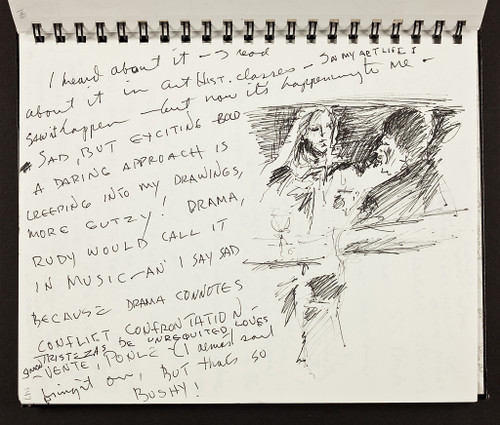 I heard about it - I read
about it in art HIST. classes - IN MY ART LIFE I
saw it happen - but now it's happening to me -
SAD, BUT EXCITING BOLD
A DARING APPROACH IS
CREEPING INTO MY DRAWINGS,
MORE GUTZY! DRAMA,
RUDY WOULD CALL IT
IN MUSIC - AN' I SAY SAD
BECAUSE DRAMA CONNOTES
CONFLICT CONFRONTATION -
TRISTEZAS DE UNREQUITED LOVES
- VENTE, PONLE - (I almost said
bring it on, BUT thats so
BUSHY!